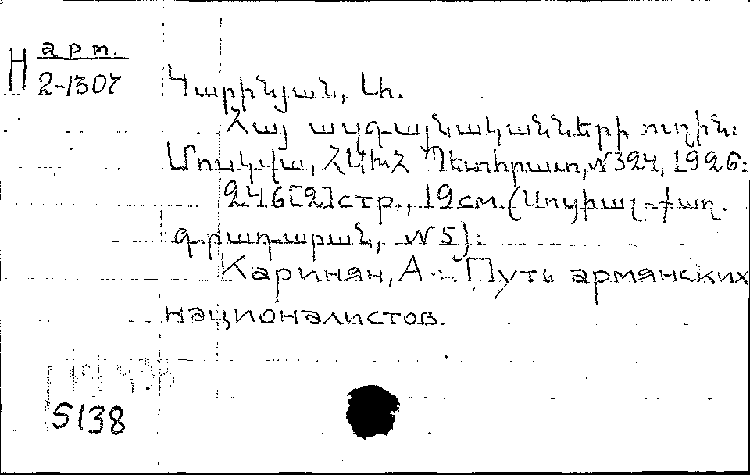 H арт.
2-1307
Կարինյան, Ա.
Հայ ազգայնականների ուղին:
Մոսկվա, ՀԽՍՀ Պետհրատ, №324, 1926:
246[2]стр., 19см. (Սոցիալ-քաղ.
գրադարան, №5):
Каринян, А. Путь армянских
националистов.
5138